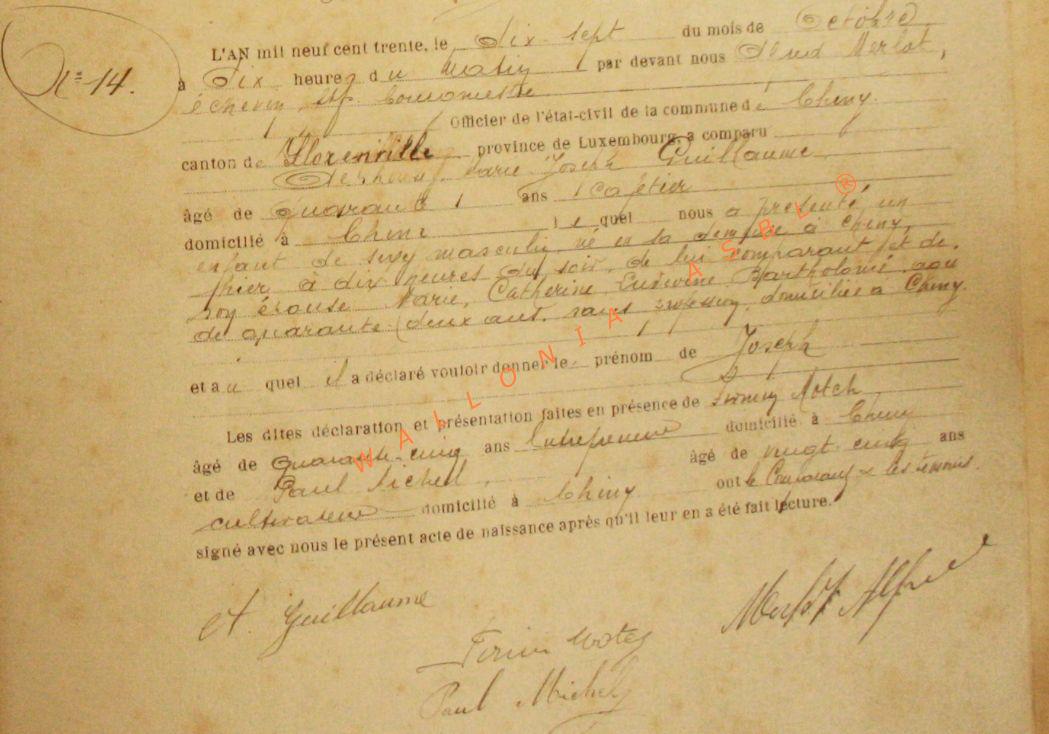 N° 14.
L'AN mil neuf cent trente, le dix sept du mois de Octobre
à dix heures du matin par devant nous Merlot,
échevin ff. bourgmestre
Officier de l'état-civil de la commune de Chiny.
canton de Florenville province de Luxembourg, a comparu
Marie Joseph Guillaume
âgé de quarante ans cafetier
domicilié à Chiny lequel nous a présenté un
enfant de sexe masculin né en sa demeure à Chiny,
hier à dix heures du soir, de lui comparant et de
son épouse Marie, Catherine, Bartholomé,
de quarante deux ans, sans profession, domiciliée à Chiny.
et au quel il a déclaré vouloir donner le prénom de Joseph
Les dites déclaration et présentation faites en présence de
âgé de quarante-cinq ans Entrepreneur domicilié à Chiny
et de Paul Michel, âgé de vingt cinq ans
cultivateur domicilié à Chiny ont le comparant & les témoins
signé avec nous le présent acte de naissance après qu'il leur en a été fait lecture.
Guillaume
Merlot Alfred
Paul Michel
WALLONIA ASBL ®